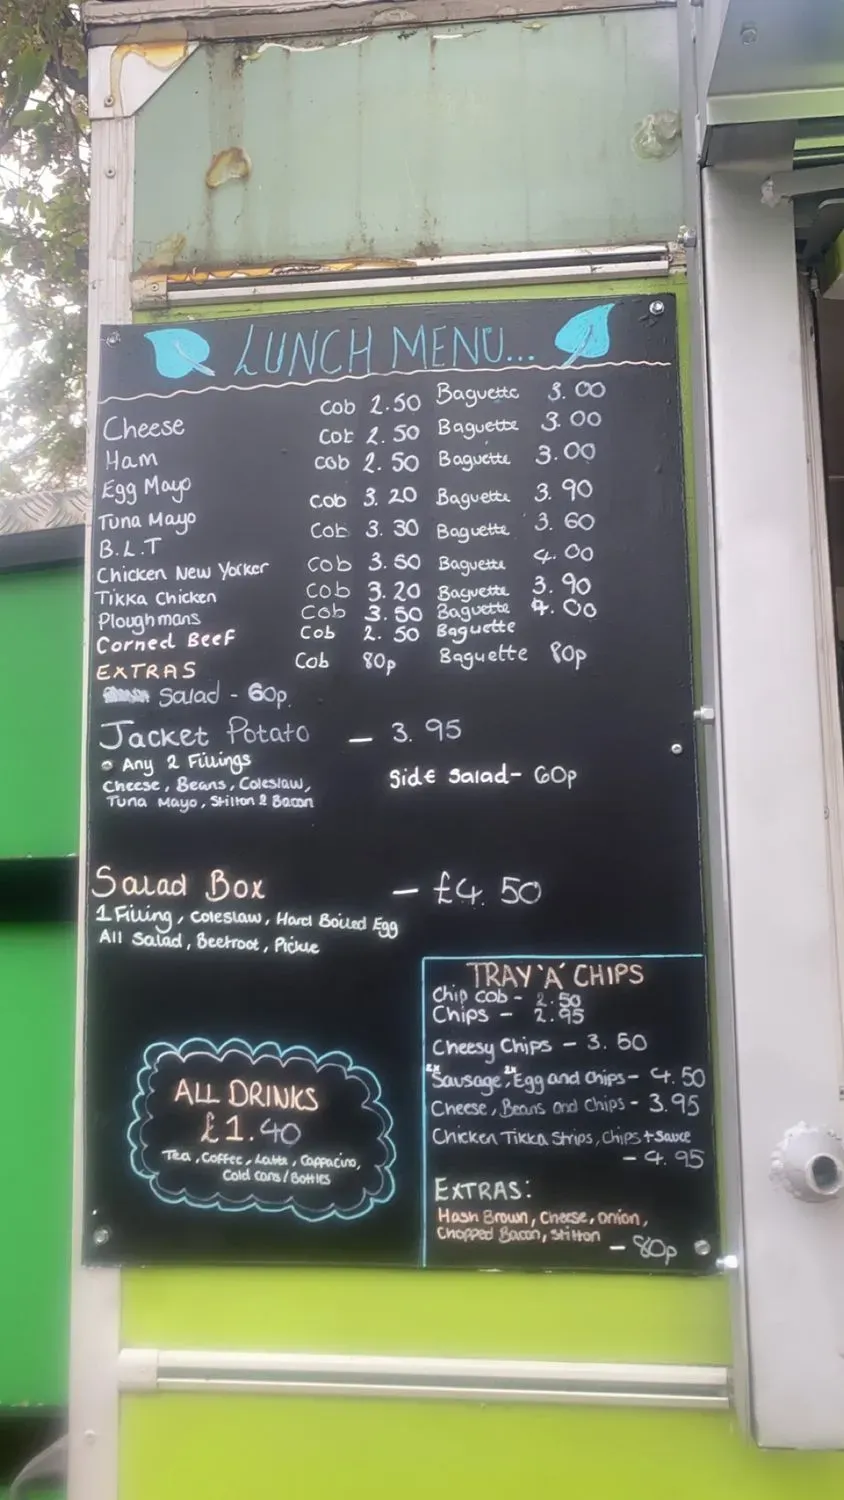 LUNCH MENU...
Cheese Cob 2.50 Baguette 3.00
Ham Cob 2.50 Baguette 3.00
Egg Mayo Cob 2.50 Baguette 3.00
Tuna Mayo Cob 3.20 Baguette 3.90
B.L.T Cob 3.30 Baguette 3.60
Chicken New Yorker Cob 3.60 Baguette 4.00
Tikka Chicken Cob 3.20 Baguette 3.90
Ploughmans Cob 3.50 Baguette 4.00
Corned Beef Cob 2.50 Baguette
EXTRAS Cob 80p Baguette 80p
Salad - 60p.
Jacket Potato - 3.95
Any 2 Fillings
Cheese, Beans, Coleslaw,
Tuna Mayo, Stilton & Bacon
Side Salad - 60p
Salad Box - £4.50
1 Filling, Coleslaw, Hard Boiled Egg
All Salad, Beetroot, Pickle
ALL DRINKS
£1.40
Tea, Coffee, Latte, Cappacino,
Cold cans/Bottles
TRAY 'A' CHIPS
Chip cob - 2.50
Chips - 2.95
Cheesy Chips - 3.50
2x Sausage, 2x Egg and chips - 4.50
Cheese, Beans and Chips - 3.95
Chicken Tikka Strips, Chips + Sauce
- 4.95
EXTRAS:
Hash Brown, Cheese, onion,
Chopped Bacon, Stilton
- 80p